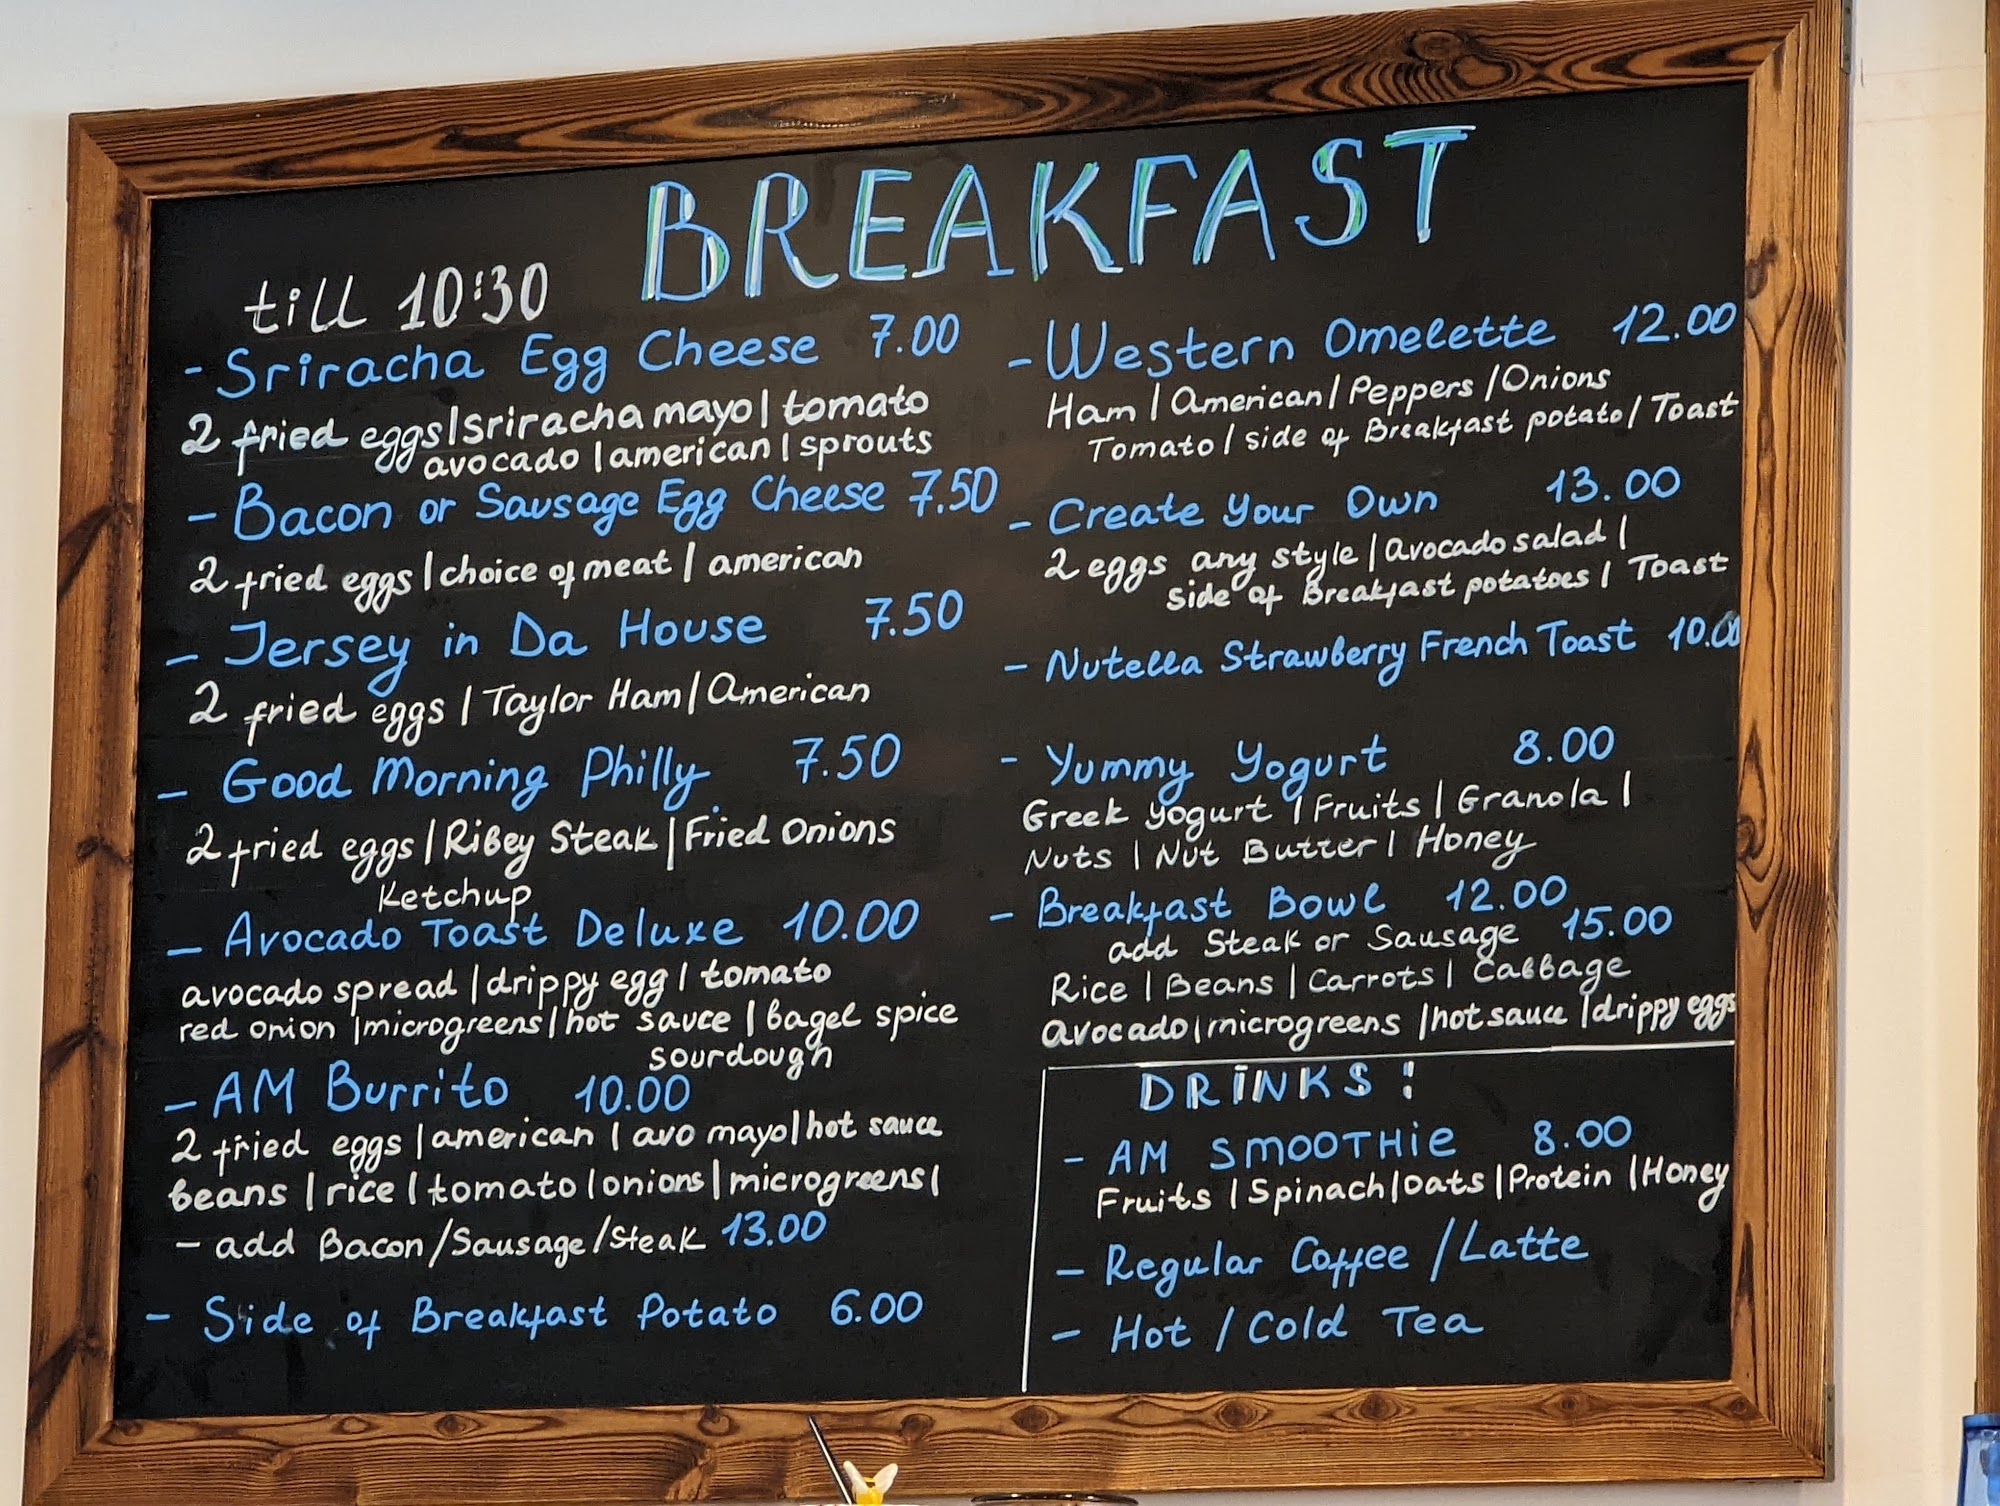 BREAKFAST
till 10:30
- Sriracha Egg Cheese 7.00
2 fried eggs | sriracha mayo | tomato
avocado | american | sprouts
- Bacon or Sausage Egg Cheese 7.50
2 fried eggs | choice of meat | american
- Jersey in Da House 7.50
2 fried eggs | Taylor Ham | American
- Good Morning Philly 7.50
2 fried eggs | Ribey Steak | Fried Onions
Ketchup
- Avocado Toast Deluxe 10.00
avocado spread | drippy egg | tomato
red onion | microgreens | hot sauce | bagel spice
sourdough
- AM Burrito 10.00
2 fried eggs | american | avo mayo | hot sauce
beans | rice | tomato | onions | microgreens |
- add Bacon/Sausage/Steak 13.00
- Side of Breakfast Potato 6.00
- Western Omelette 12.00
Ham | American | Peppers | Onions
Tomato | side of Breakfast potato | Toast
- Create Your Own 13.00
2 eggs any style | avocado salad |
side of Breakfast potatoes | Toast
- Nutella Strawberry French Toast 10.00
- Yummy Yogurt 8.00
Greek yogurt | Fruits | Granola |
Nuts | Nut Butter | Honey
- Breakfast Bowl 12.00
add Steak or Sausage 15.00
Rice | Beans | Carrots | Cabbage
avocado | microgreens | hot sauce | drippy eggs
DRINKS!
- AM SMOOTHiE 8.00
Fruits | Spinach | Oats | Protein | Honey
- Regular Coffee / Latte
- Hot / Cold Tea